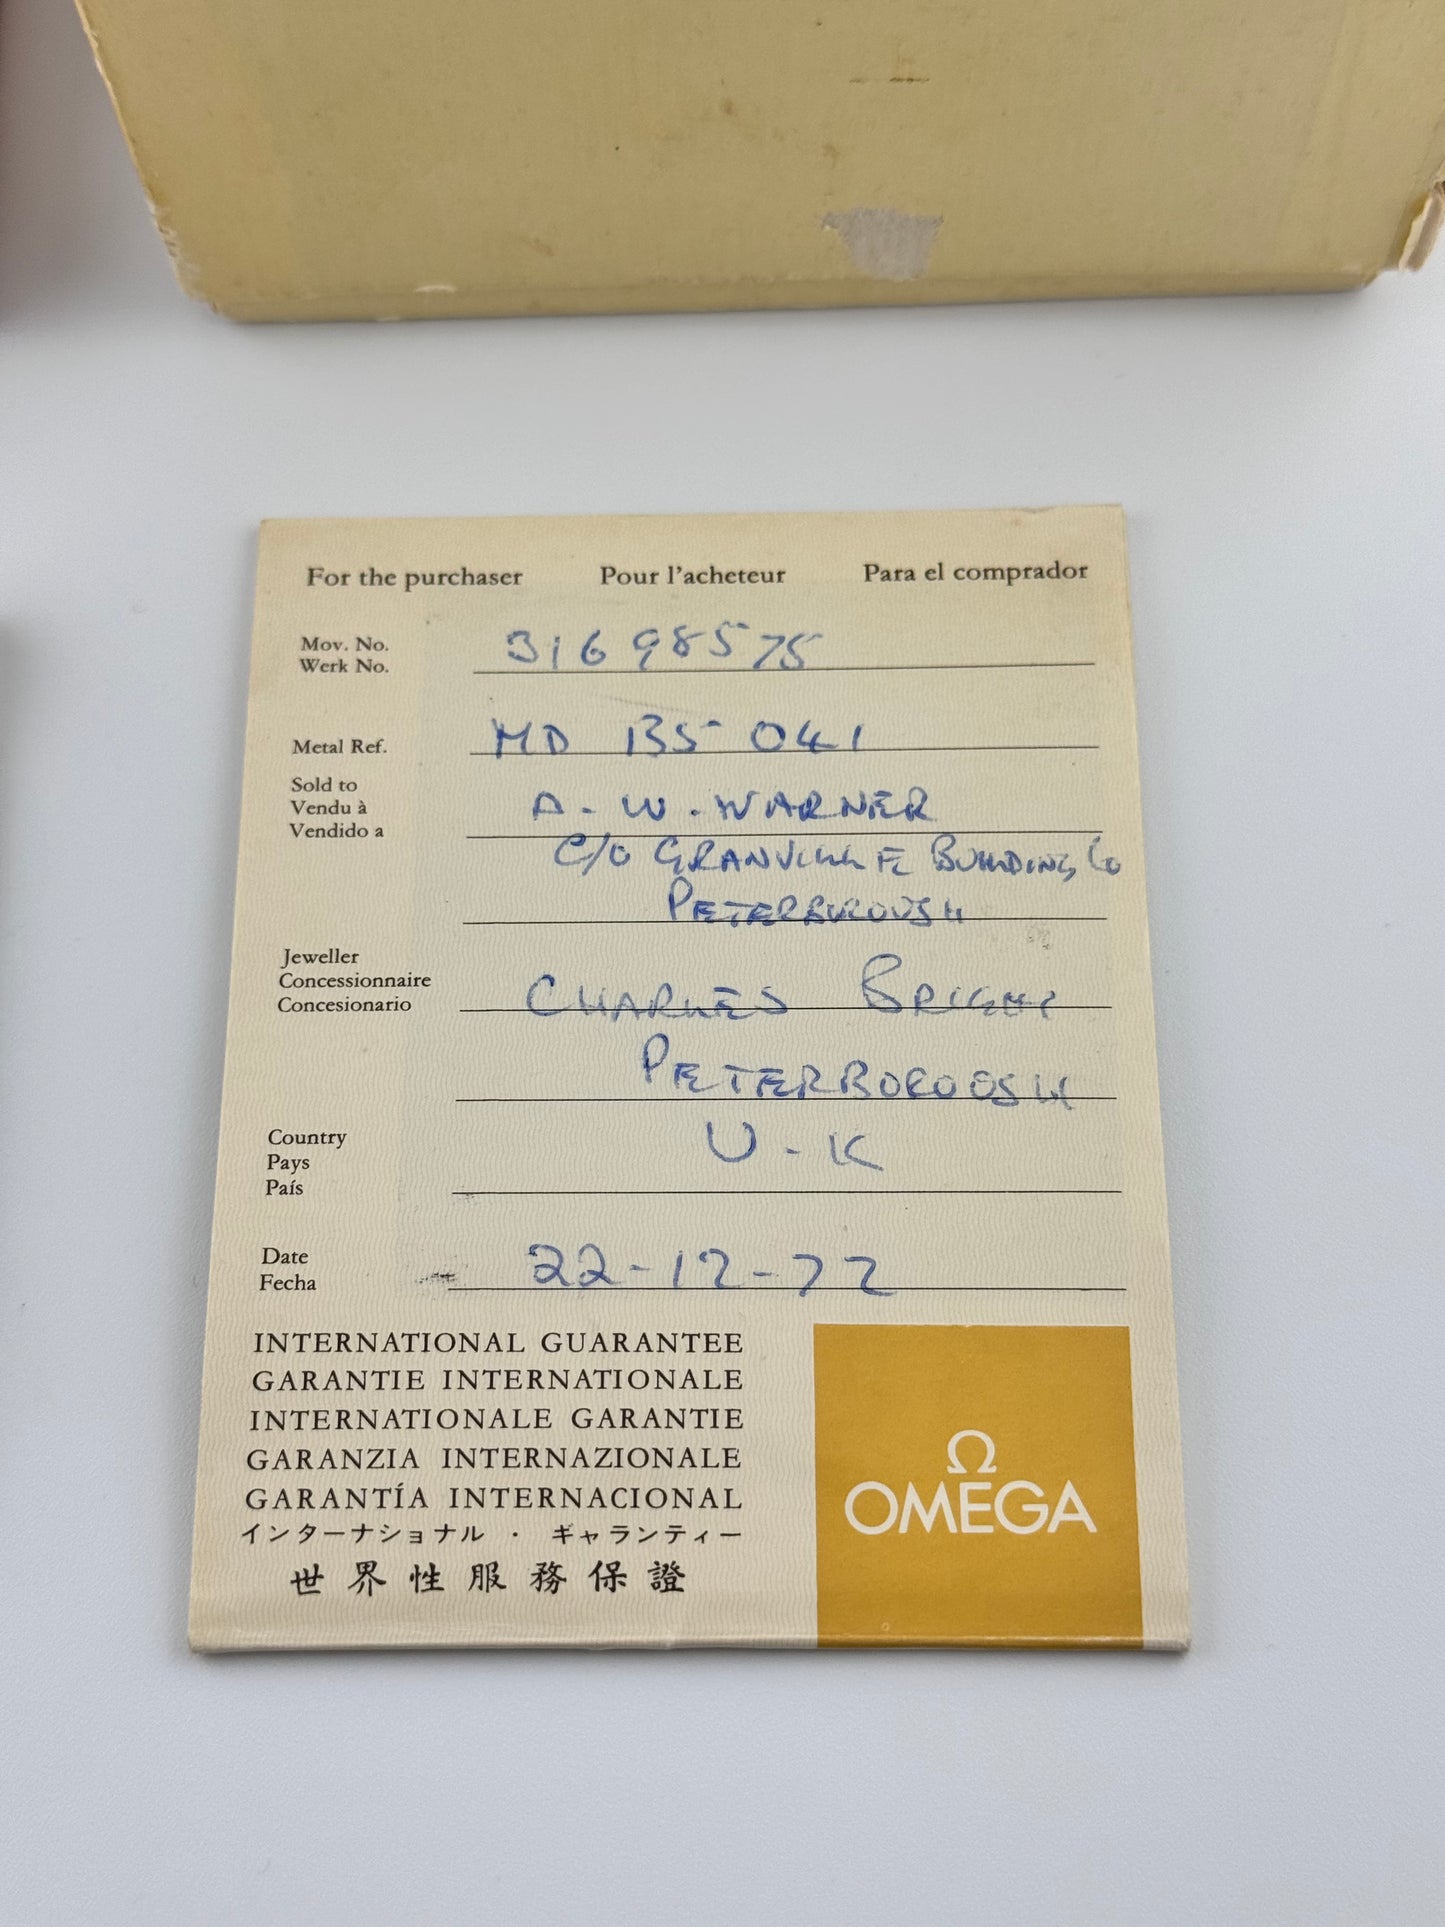 For the purchaser Pour l'acheteur Para el comprador
Mov. No. 31698575
Werk No.
Metal Ref. MD 135 041
Sold to A. W. WARNER
Vendu à
Vendido a
C/O GRANVILLE BUILDING Co
PETERBOROUGH
Jeweller
Concessionnaire
Concesionario CHARLES BRIGHT
PETERBOROUGH
Country U-K
Pays
País
Date 22-12-72
Fecha
INTERNATIONAL GUARANTEE
GARANTIE INTERNATIONALE
INTERNATIONALE GARANTIE
GARANZIA INTERNAZIONALE
GARANTÍA INTERNACIONAL
インターナショナル ・ ギャランティー
世界性服務保證
Ω
OMEGA